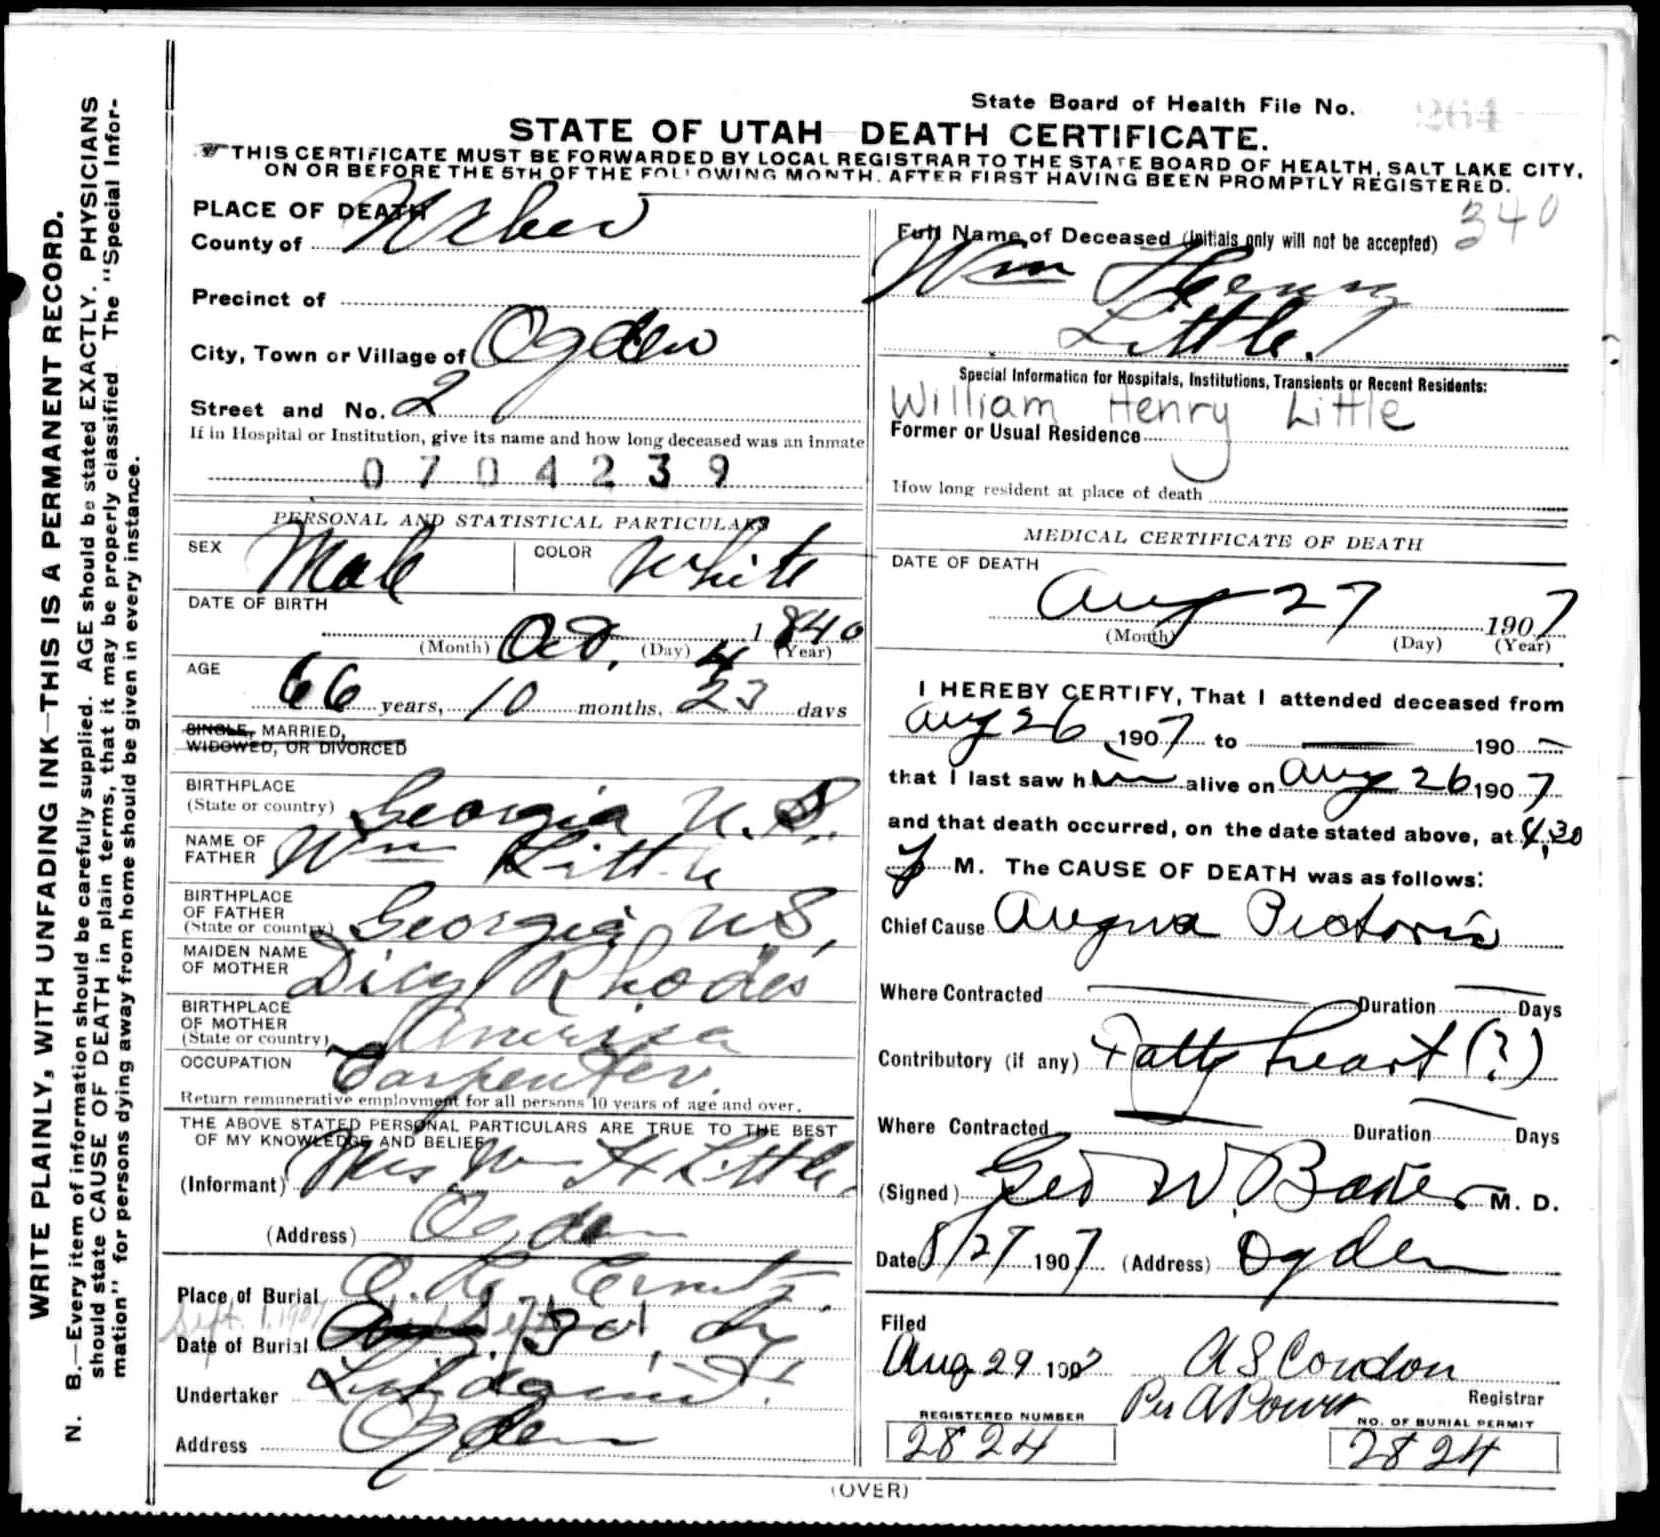 WRITE PLAINLY, WITH UNFADING INK—THIS IS A PERMANENT RECORD.
N. B.—Every item of information should be carefully supplied. AGE should be stated EXACTLY. PHYSICIANS
should state CAUSE OF DEATH in plain terms, that it may be properly classified. The "Special Infor-
mation" for persons dying away from home should be given in every instance.
State Board of Health File No. 264
STATE OF UTAH DEATH CERTIFICATE.
THIS CERTIFICATE MUST BE FORWARDED BY LOCAL REGISTRAR TO THE STATE BOARD OF HEALTH, SALT LAKE CITY,
ON OR BEFORE THE 5TH OF THE FOLLOWING MONTH. AFTER FIRST HAVING BEEN PROMPTLY REGISTERED.
PLACE OF DEATH
County of Weber
Precinct of
City, Town or Village of Ogden
Street and No. 2
If in Hospital or Institution, give its name and how long deceased was an inmate
0704239
PERSONAL AND STATISTICAL PARTICULARS
SEX Male COLOR White
DATE OF BIRTH
(Month) Oct. (Day) 4 1840 (Year)
AGE
66 years, 10 months, 23 days
SINGLE, MARRIED,
WIDOWED, OR DIVORCED
BIRTHPLACE
(State or country) Georgia U.S.
NAME OF
FATHER Wm Little
BIRTHPLACE
OF FATHER
(State or country) Georgia U.S,
MAIDEN NAME
OF MOTHER Dicy Rhodes
BIRTHPLACE
OF MOTHER
(State or country) America
OCCUPATION Carpenter.
Return remunerative employment for all persons 10 years of age and over.
THE ABOVE STATED PERSONAL PARTICULARS ARE TRUE TO THE BEST
OF MY KNOWLEDGE AND BELIEF
(Informant) Mrs Wm H Little
(Address) Ogden
Place of Burial
Sept. 1, 1907
Date of Burial
Undertaker
Address Ogden
340
Full Name of Deceased (initials only will not be accepted)
Wm Henry
Little.
Special Information for Hospitals, Institutions, Transients or Recent Residents:
William Henry Little
Former or Usual Residence
How long resident at place of death
MEDICAL CERTIFICATE OF DEATH
DATE OF DEATH
Aug 27 1907
(Month) (Day) (Year)
I HEREBY CERTIFY, That I attended deceased from
Aug 26 1907 to — 190 —
that I last saw him alive on Aug 26 1907
and that death occurred, on the date stated above, at 4,30
M. The CAUSE OF DEATH was as follows:
Chief Cause Angina Pectoris
Where Contracted — Duration — Days
Contributory (if any) Fatty heart (?)
Where Contracted — Duration — Days
(Signed) Geo W. Baker M. D.
Date 8/27 1907 (Address) Ogden
Filed
Aug 29 1907 A S Condon
Per A Power Registrar
REGISTERED NUMBER
2824
NO. OF BURIAL PERMIT
2824
(OVER)